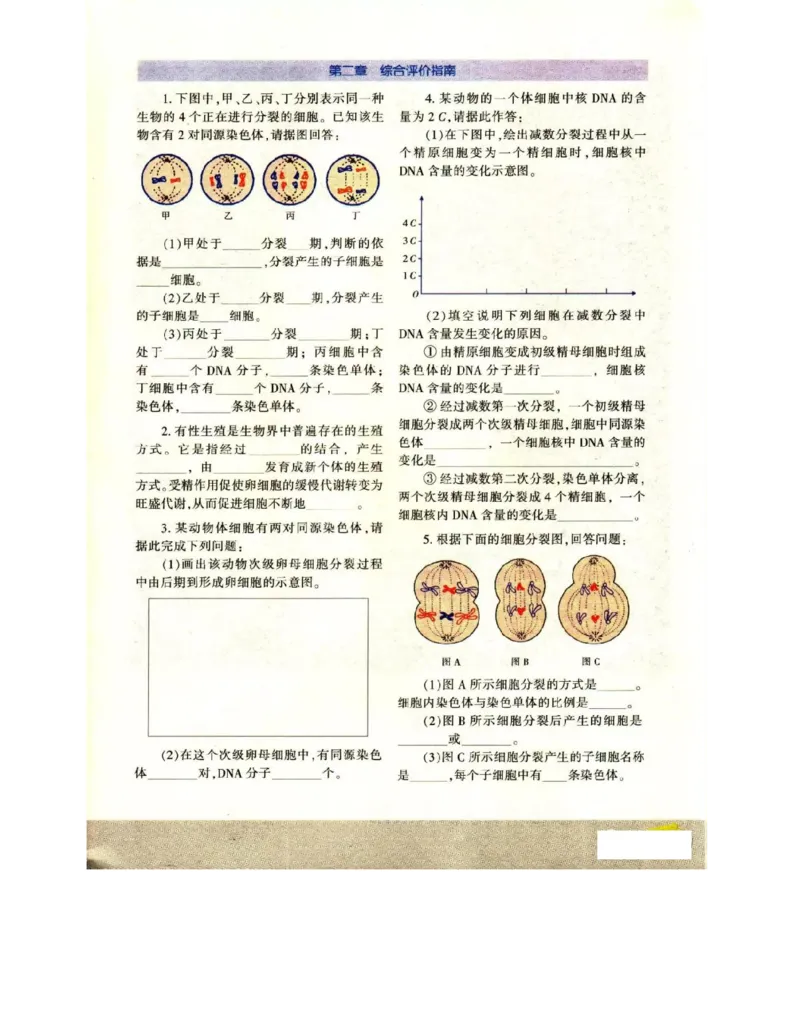 第二章 综合评价指南
1. 下图中,甲、乙、丙、丁分别表示同一种
生物的 4 个正在进行分裂的细胞。已知该生
物含有 2 对同源染色体,请据图回答:
甲 乙 丙 丁
(1)甲处于_____分裂___期,判断的依
据是_____________,分裂产生的子细胞是
____细胞。
(2)乙处于_____分裂___期,分裂产生
的子细胞是____细胞。
(3)丙处于______分裂______期;丁
处于_____分裂______期；丙细胞中含
有_____个 DNA 分子,_____条染色单体;
丁细胞中含有_____个 DNA 分子,____条
染色体,______条染色单体。
2. 有性生殖是生物界中普遍存在的生殖
方式。它是指经过______的结合，产生
______，由______发育成新个体的生殖
方式。受精作用促使卵细胞的缓慢代谢转变为
旺盛代谢,从而促进细胞不断地______。
3. 某动物体细胞有两对同源染色体,请
据此完成下列问题:
(1)画出该动物次级卵母细胞分裂过程
中由后期到形成卵细胞的示意图。
(2)在这个次级卵母细胞中,有同源染色
体______对,DNA 分子______个。
4. 某动物的一个体细胞中核 DNA 的含
量为 2 C,请据此作答:
(1)在下图中,绘出减数分裂过程中从一
个精原细胞变为一个精细胞时,细胞核中
DNA 含量的变化示意图。
4 C
3 C
2 C
1 C
O
(2)填空说明下列细胞在减数分裂中
DNA 含量发生变化的原因。
①由精原细胞变成初级精母细胞时组成
染色体的 DNA 分子进行______，细胞核
DNA 含量的变化是______。
②经过减数第一次分裂，一个初级精母
细胞分裂成两个次级精母细胞,细胞中同源染
色体________，一个细胞核中 DNA 含量的
变化是__________________。
③经过减数第二次分裂,染色单体分离,
两个次级精母细胞分裂成 4 个精细胞，一个
细胞核内 DNA 含量的变化是_________。
5. 根据下面的细胞分裂图,回答问题:
图 A 图 B 图 C
(1)图 A 所示细胞分裂的方式是_____。
细胞内染色体与染色单体的比例是_____。
(2)图 B 所示细胞分裂后产生的细胞是
______或______。
(3)图 C 所示细胞分裂产生的子细胞名称
是_____,每个子细胞中有___条染色体。